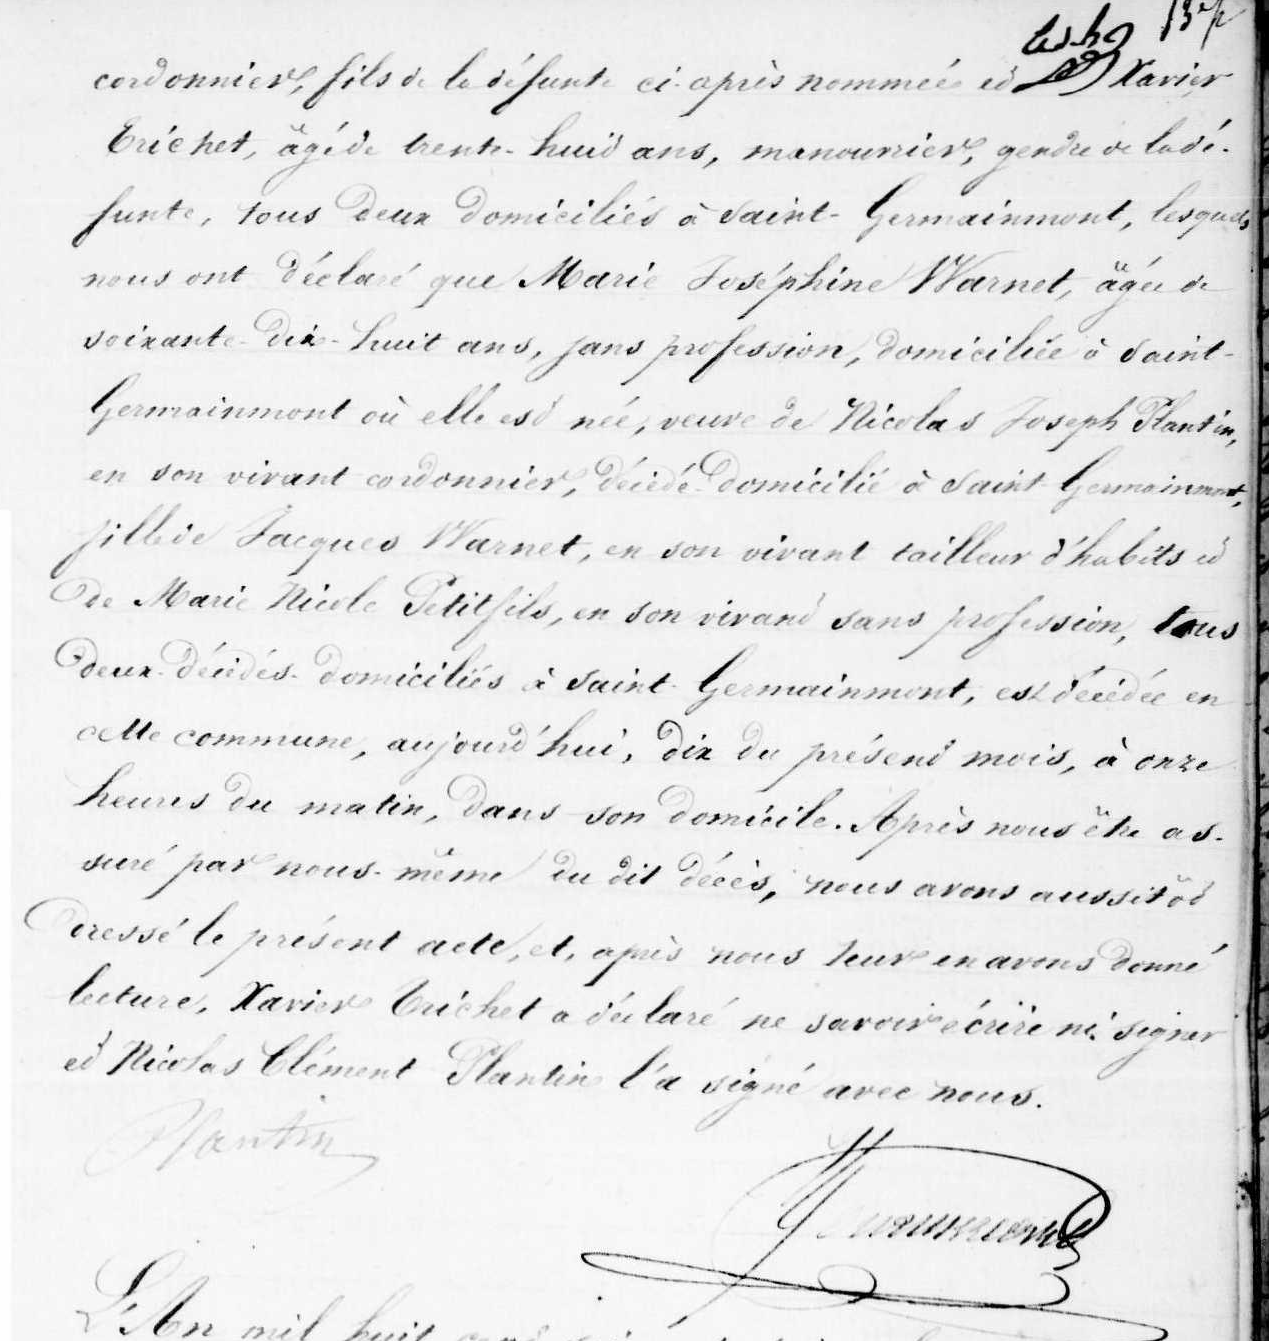 cordonnier, fils de la défunte ci-après nommée et Xavier
Trichet, âgé de trente-huit ans, manouvrier, gendre de la dé-
funte, tous deux domiciliés à Saint-Germainmont, lesquels
nous ont déclaré que Marie Joséphine Warnet, âgée de
soixante-dix-huit ans, sans profession, domiciliée à Saint-
Germainmont où elle est née, veuve de Nicolas Joseph Plantin,
en son vivant cordonnier, décédé domicilié à Saint-Germainmont,
fille de Jacques Warnet, en son vivant tailleur d'habits et
de Marie Nicole Petitfils, en son vivant sans profession, tous
deux décédés domiciliés à Saint-Germainmont, est décédée en
cette commune, aujourd'hui, dix du présent mois, à onze
heures du matin, dans son domicile. Après nous être as-
suré par nous-même du dit décès, nous avons aussitôt
dressé le présent acte, et, après nous leur en avons donné
lecture, Xavier Trichet a déclaré ne savoir écrire ni signer
et Nicolas Clément Plantin l'a signé avec nous.
Plantin
L'An mil huit cent